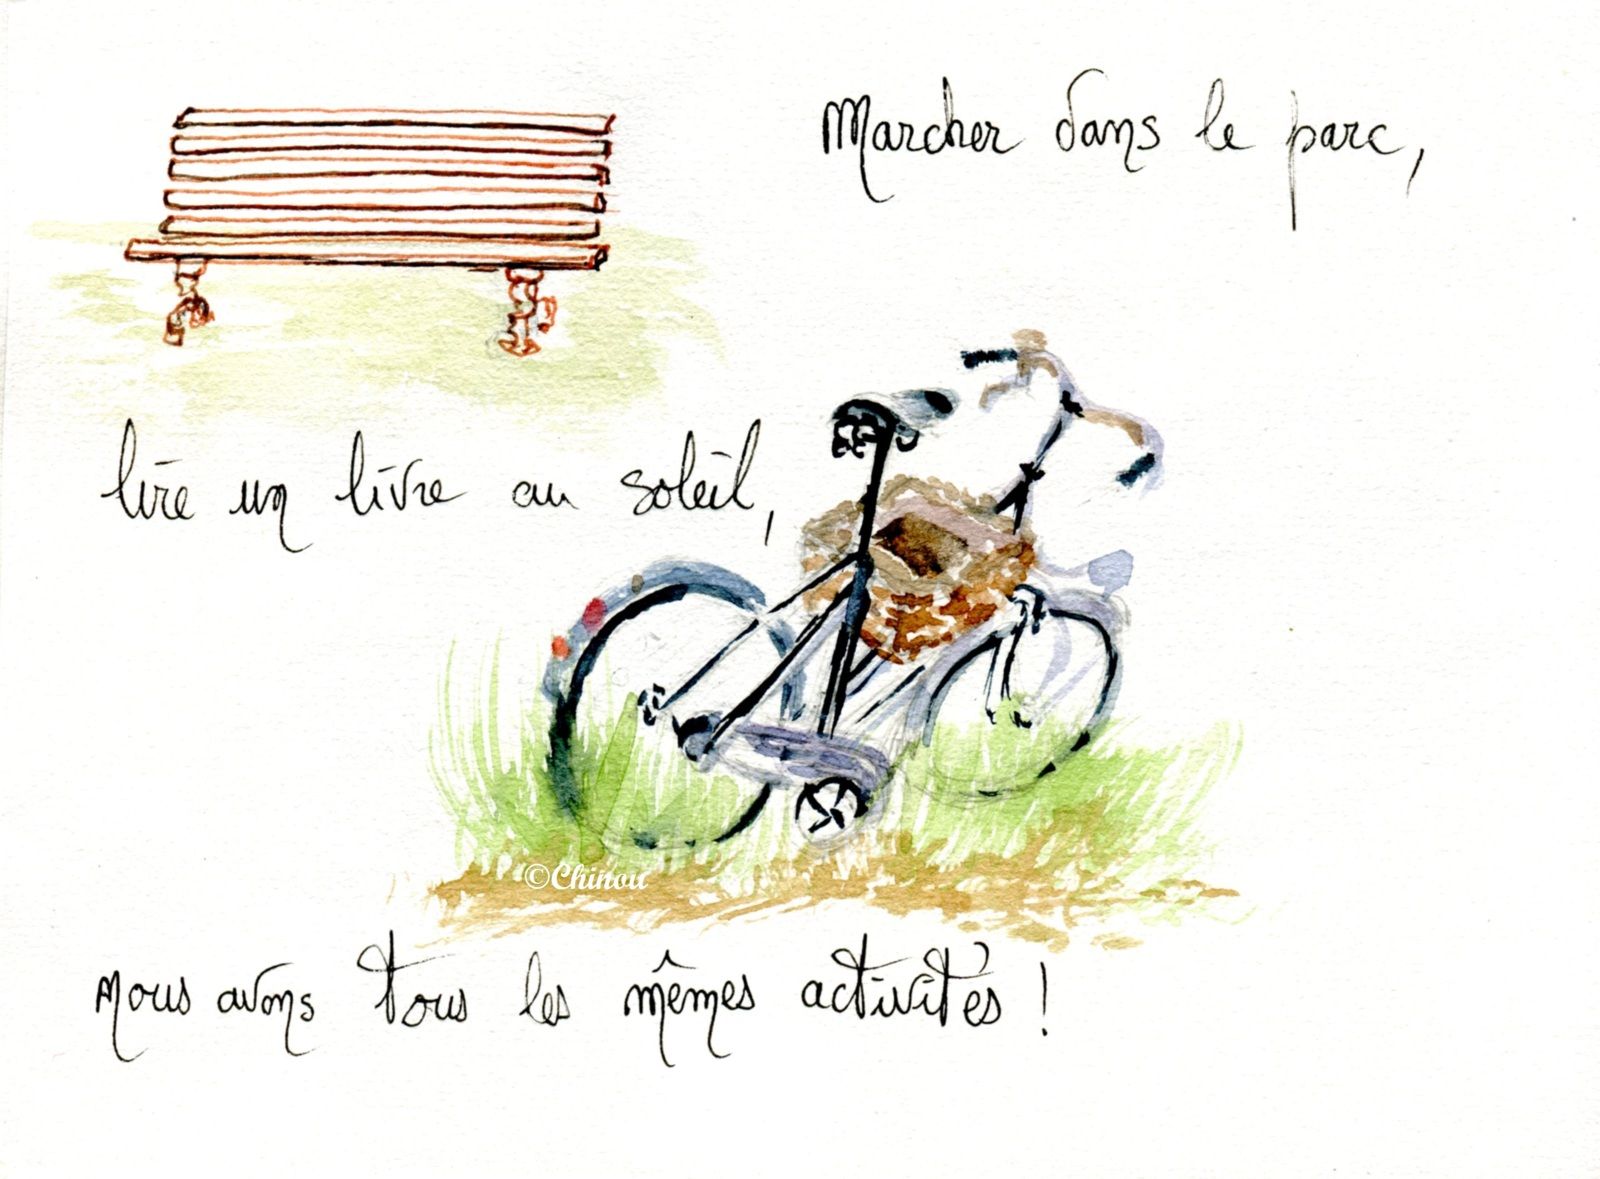 Marcher dans le parc,
lire un livre au soleil,
©Chinou
nous avons tous les mêmes activités !